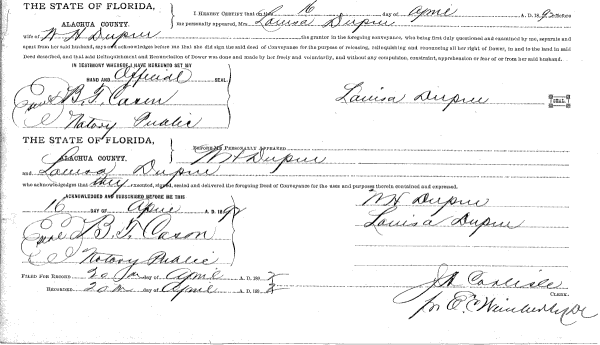 THE STATE OF FLORIDA,
ALACHUA COUNTY.
I HEREBY CERTIFY that on this 16 day of April A. D. 189 before
me personally appeared, Mrs. Louisa Dupru
wife of W H Dupru the grantor in the foregoing conveyance, who being first duly questioned and examined by me, separate and
apart from her said husband, say and acknowledges before me that she did sign the said deed of Conveyance for the purpose of releasing, relinquishing and renouncing all her right of Dower, in and to the land in said
Deed described, and that said Relinquishment and Renunciation of Dower was done and made by her freely and voluntarily, and without any compulsion, constraint, apprehension or fear of or from her said husband.
IN TESTIMONY WHEREOF, I HAVE HEREUNTO SET MY
HAND AND Official SEAL
B. F. Cason
Notary Public
Louisa Dupru SEAL.
THE STATE OF FLORIDA,
ALACHUA COUNTY.
BEFORE ME PERSONALLY APPEARED
W H Dupru
and Louisa Dupru
who acknowledges that they executed, signed, sealed and delivered the foregoing Deed of Conveyance for the uses and purposes therein contained and expressed.
ACKNOWLEDGED AND SUBSCRIBED BEFORE ME THIS
16 DAY OF April A. D. 189
B. F. Cason
Notary Public
W H Dupru
Louisa Dupru
FILED FOR RECORD 20 day of April A. D. 189
RECORDED 20 day of April A. D. 189
J A Carlisle
CLERK.
for E. C. Wimberly DC